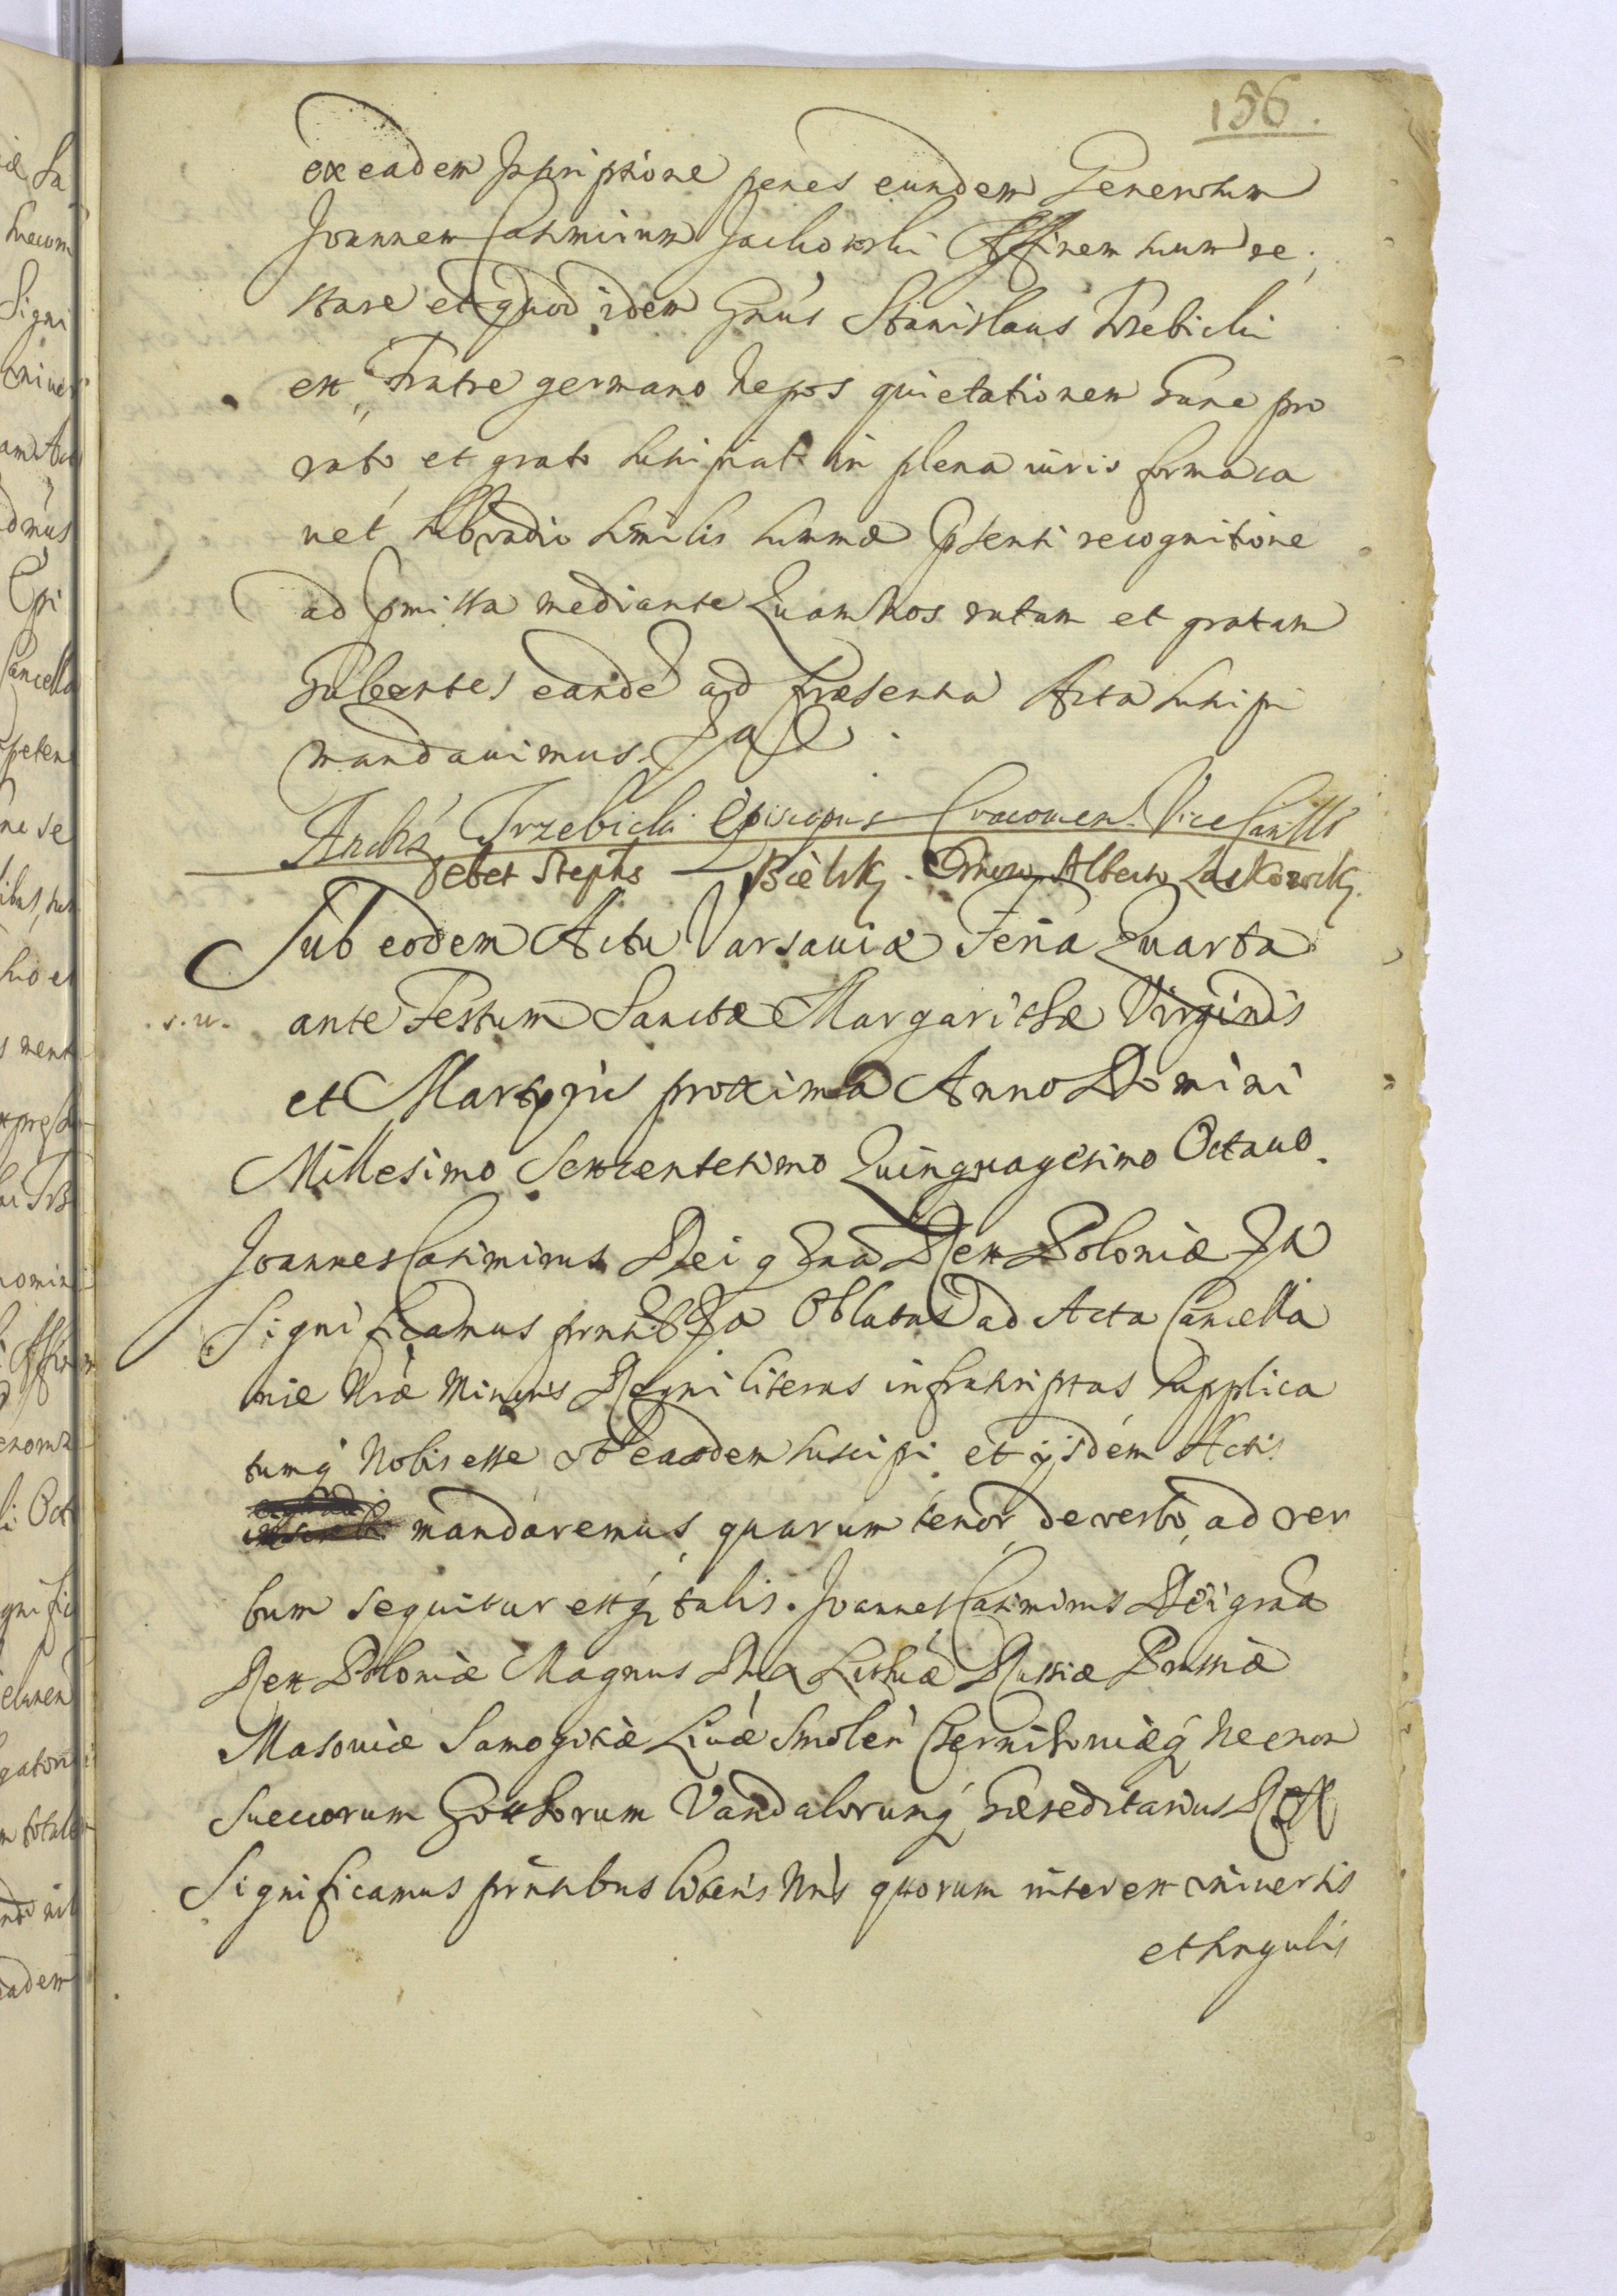 156.
ex eadem Inscriptione penes eundem Generosum
Joannem Casimirum Jackowski Affinem suum re„
stare et quod idem Gnus Stanislaus Trzebicki
ex„ Fratre germano Nepos quietationem hanc pro
rato et grato suscipiat in plena iuris forma ca
vet sub vadio similis summæ Psenti recognitione
ad pmissa mediante Quam Nos ratam et gratam
habentes eande ad Præsentia Acta suscipi
mandavimus
Andrs Trzebicki Episcopus Cracouien. Vice Canclls
debet Stephs Bielsky. Alberto Laskowsky.
Sub eodem Actu Varsaviæ Feria Quarta
s. u. ante Festum Sanctæ Margarithæ Virginis
et Martyris proxima Anno Domini
Millesimo Sexcentesimo Quinquagesimo Octavo.
Joannes Casimirus Dei gra Rex Poloniæ
Significamus prntib Oblatas ad Acta Cancella
riæ Nræ Minoris Regni literas infrascriptas supplica
tumq Nobis esse ut easdem suscipi et ijsdem Actis
mandaremus, quarum tenor de verbo ad ver
bum sequitur estq talis. Joannes Casimirus Dei gra
Rex Poloniæ Magnus Dux Lithuæ Russiæ Prussiæ
Masoviæ Samogitiæ Livæ Smolen Czernihoviæq necnon
Suecorum Gotthorum Vandalorumq hæreditarius Rex
Significamus prntibus literis Nris quorum interest universis
et singulis